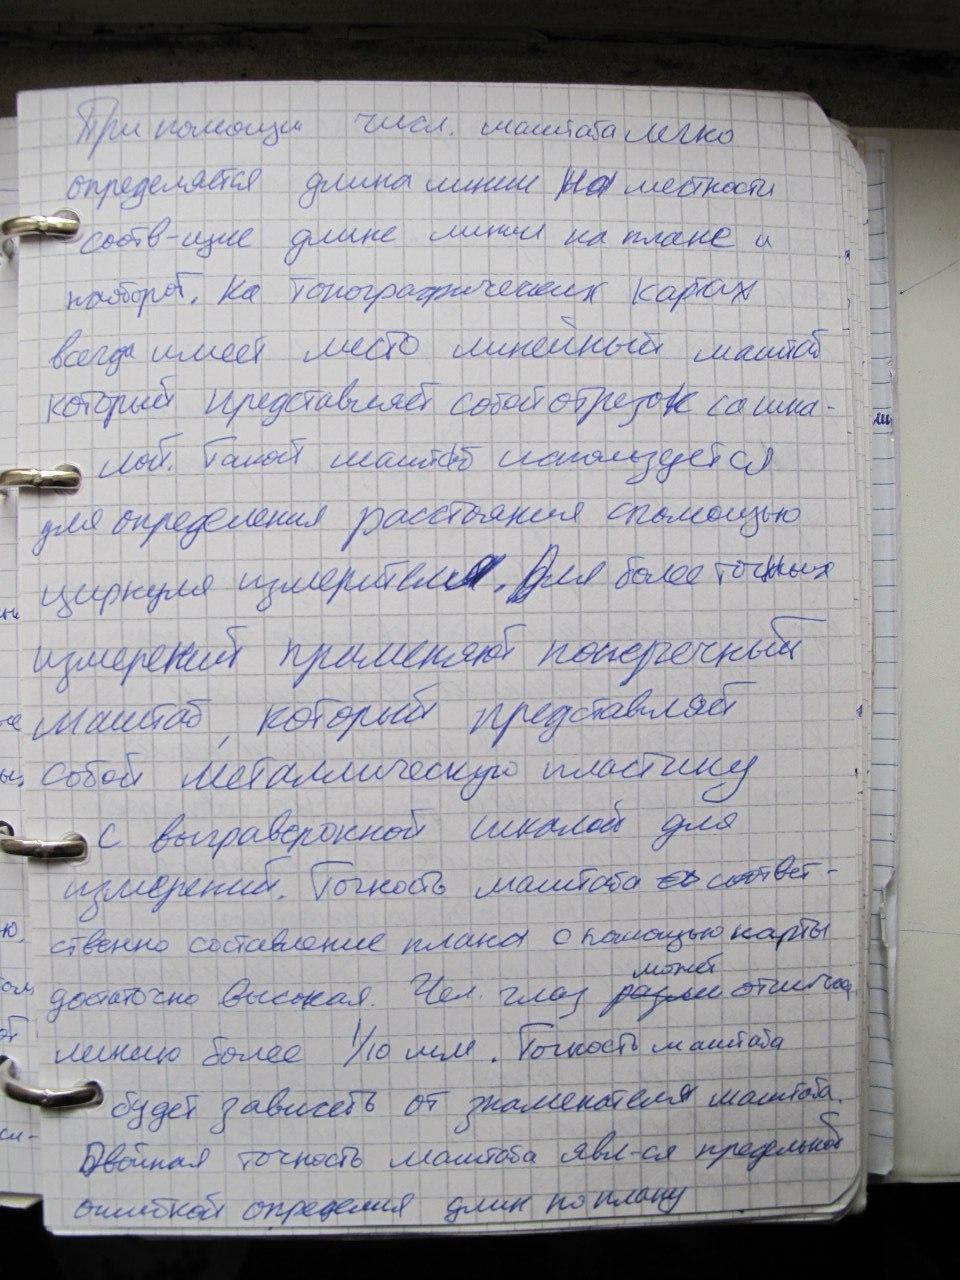 При помощи числ. масштаба легко
определяется длина линии на местности
соотв-щие длине линии на плане и
наоборот. На топографических картах
всегда имеет место линейный масштаб
который представляет собой отрезок со шка-
лой. Такой масштаб используется
для определения расстояния с помощью
циркуля измерителя. Для более точных
измерений применяют поперечный
масштаб, который представляет
собой металлическую пластину
с выгравероннной шкалой для
измерений. Точность масштаба соответ-
ственно составление плана с помощью карты
достаточно высокая. Чел. глаз может отличать
линию более 1/10 мм. Точность масштаба
будет зависеть от знаменателя масштаба.
Двойная точность масштаба явл-ся предельной
ошибкой определения длин по плану